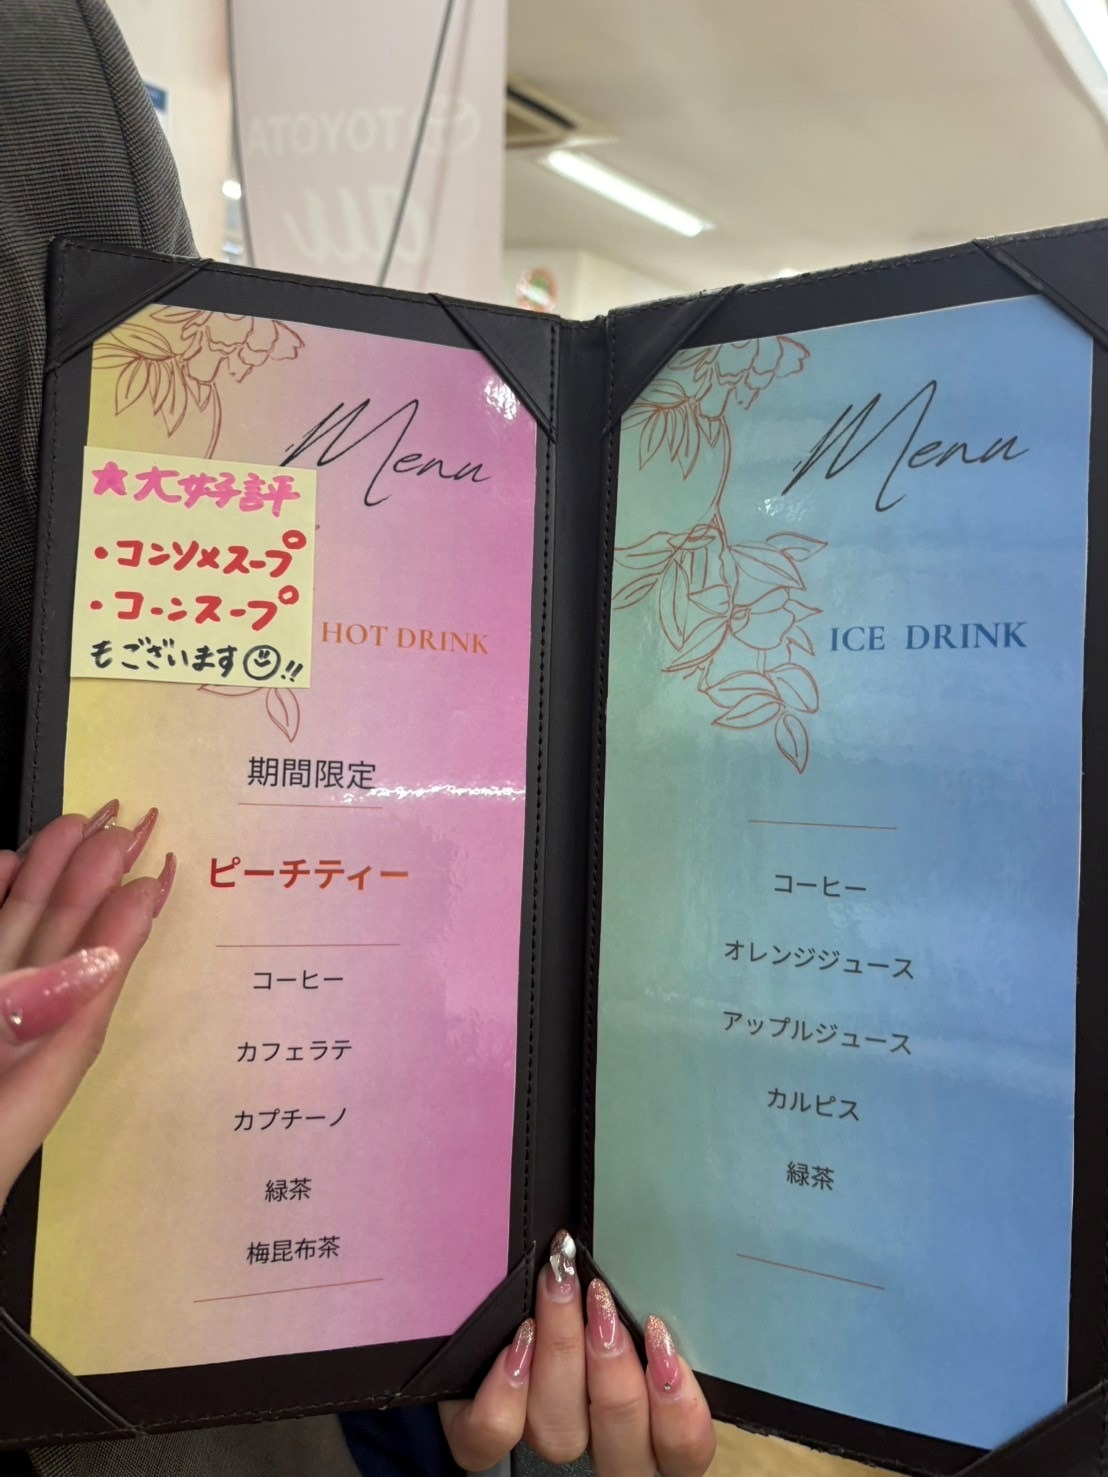 TOYOTA
au
Menu
★大好評
・コンソメスープ
・コーンスープ
もございます!!
HOT DRINK
期間限定
ピーチティー
コーヒー
カフェラテ
カプチーノ
緑茶
梅昆布茶
Menu
ICE DRINK
コーヒー
オレンジジュース
アップルジュース
カルピス
緑茶